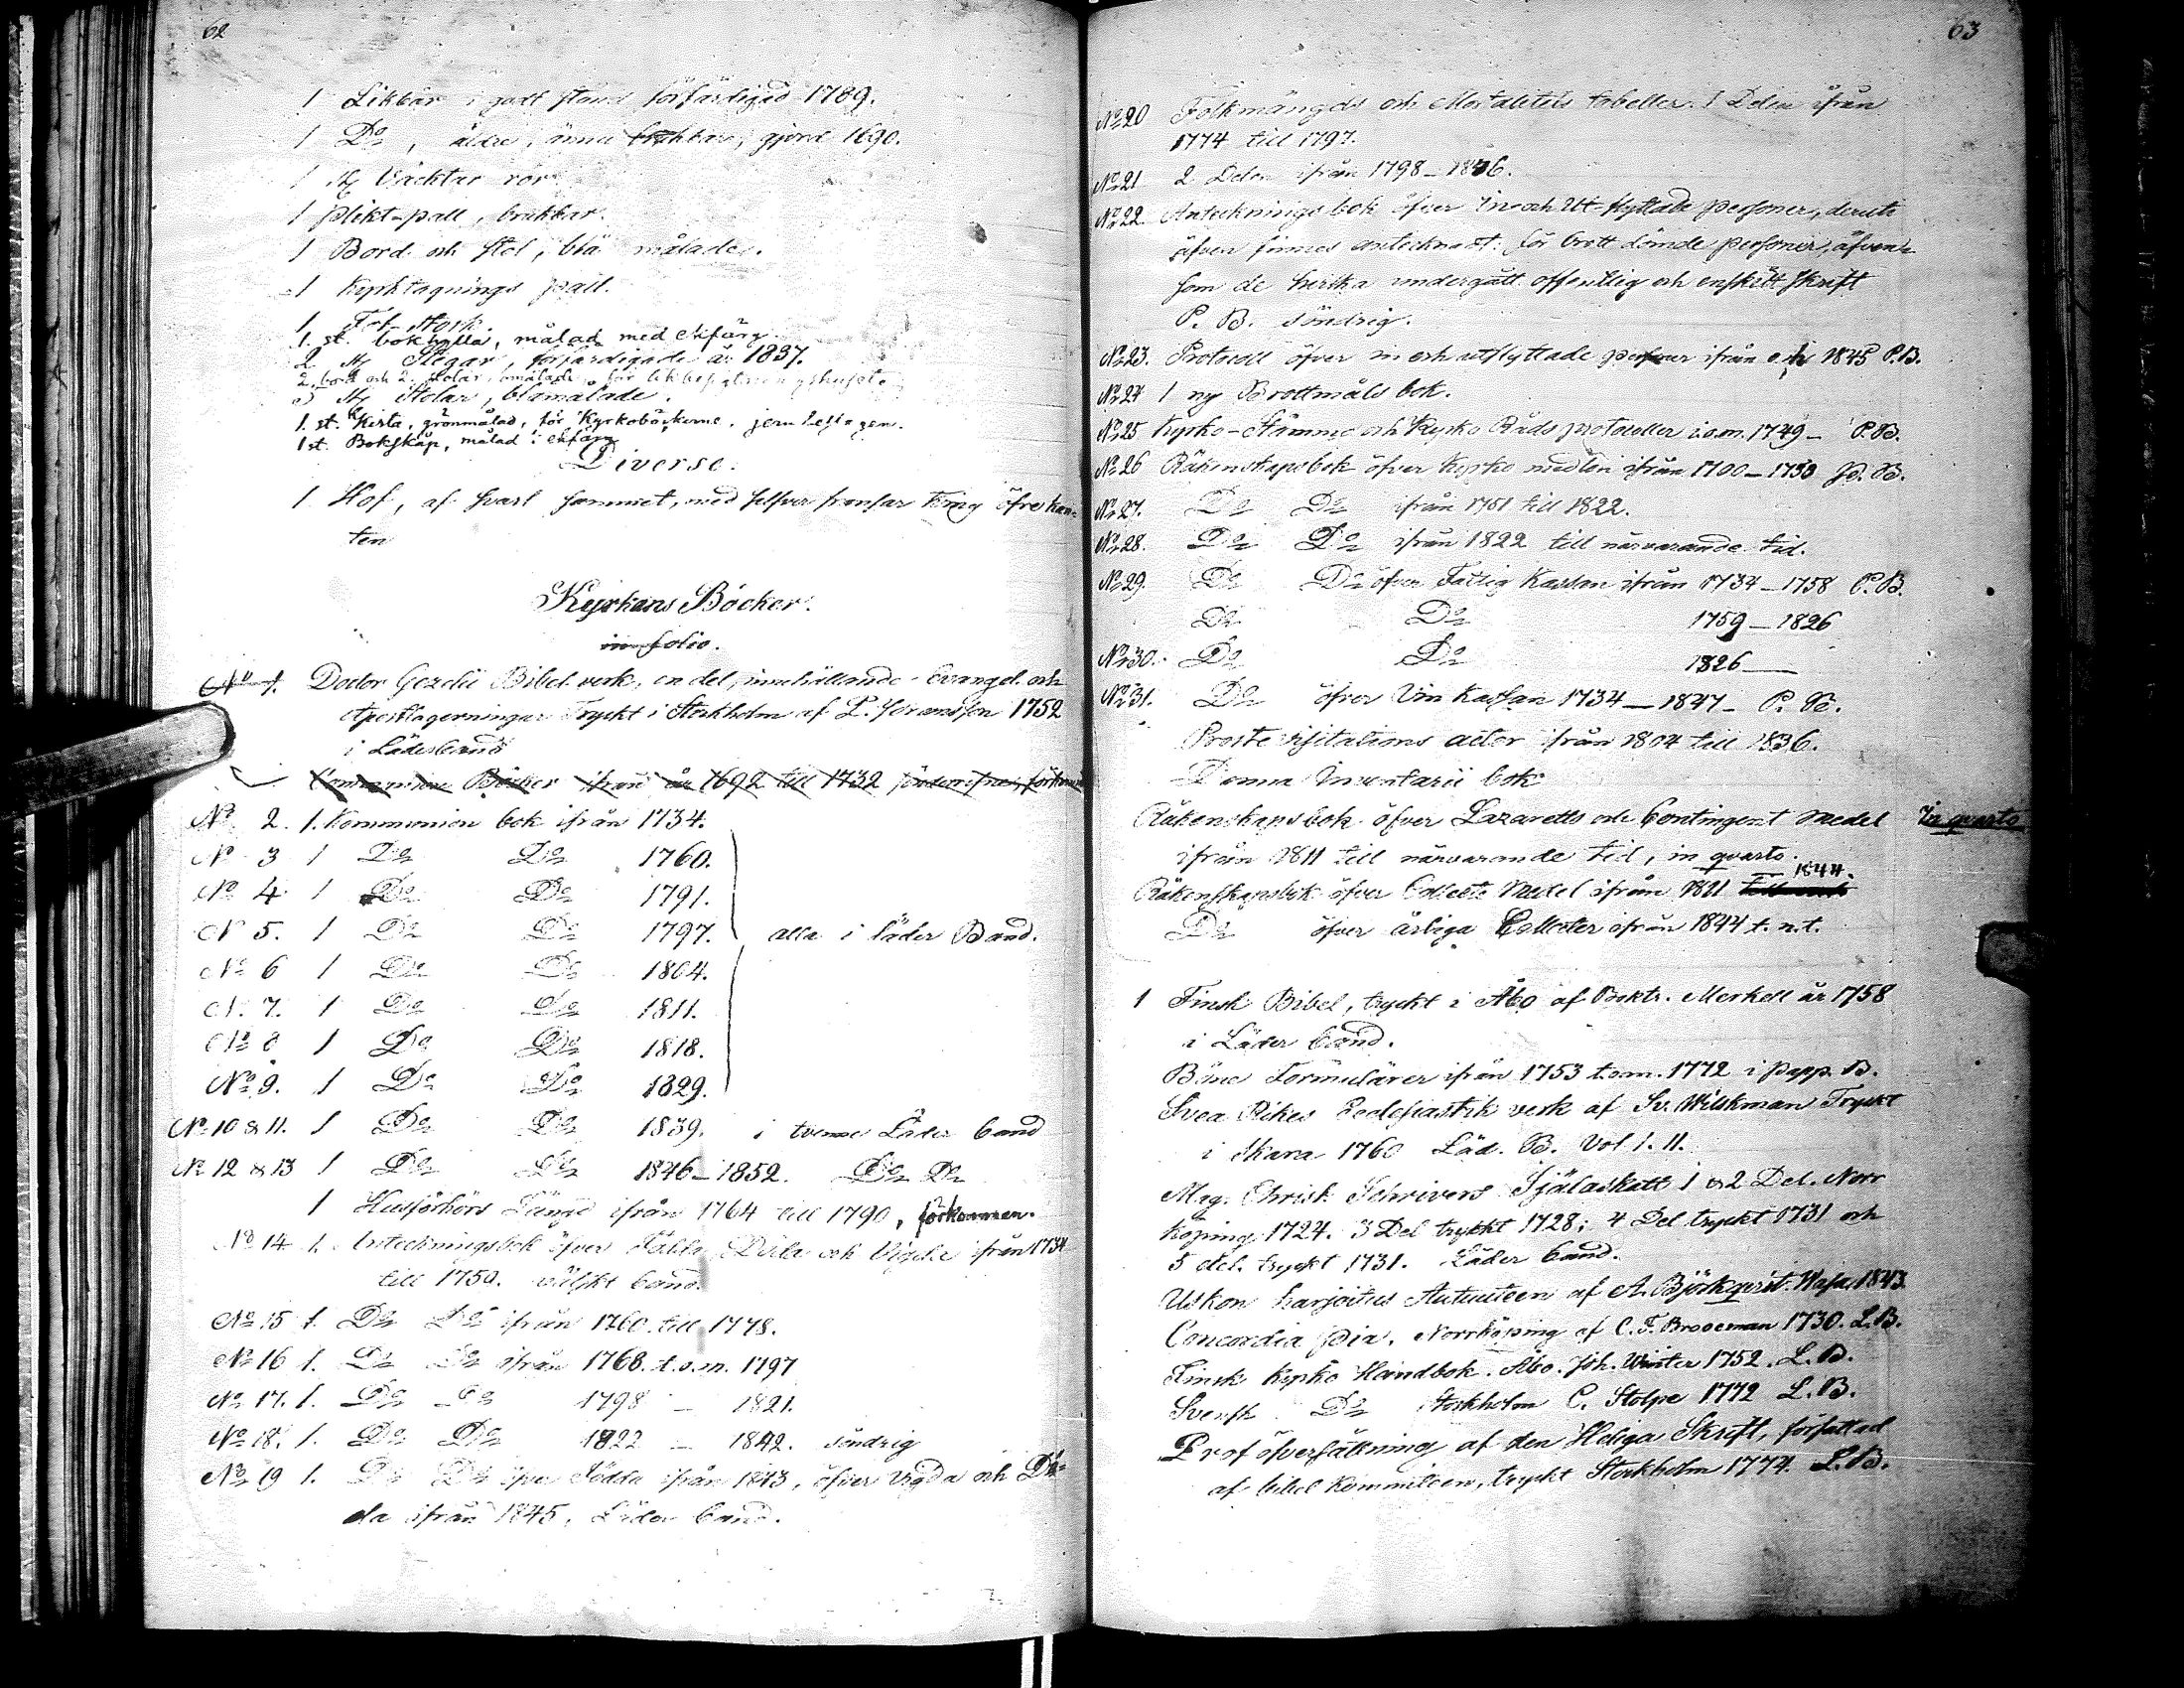 62
1 Likbår i godt stånd förfärdigad 1789.
1 Do, äldre, ännu brukbar, gjord 1690.
1 st Väcktar rör.
1 plikt-pall, brukbar.
1 Bord och stol, blå målade.
1 Kyrktagnings pall.
1 Fot-stock.
1. st. bokhylla, målad med ekfärg
2 st Stegar, förfärdigade år 1837.
2. bord och 2. stolar, omålade, för
3 st Stolar, blåmålade.
1. st. Kista, grönmålad, för Kyrkoböckerne, jern beslagen.
1 st. Bokskåp, målad i ekfärg
Diverse.
1 Hof, af svart sammet, med silfver fransar kring öfre kan-
ten
Kyrkans Böcker.
in folio.
No 1. Doctor Gezelii Bibel verk, en del, innehållande Evangel. och
Apostlagerningar Tryckt i Stockholm af 1752
i Läderband
Communion Böcker ifrån år 1692 till 1732 sönderrifne, förkomne
No 2. 1. Kommunion bok ifrån 1734.
No 3 1 Do Do 1760.
No 4 1 Do Do 1791.
No 5. 1 Do Do 1797. alla i läder Band.
No 6 1 Do Do 1804.
No 7. 1 Do Do 1811.
No 8 1 Do Do 1818.
No 9. 1 Do Do 1829.
No 10 & 11. 1 Do Do 1839. i tvenne Läder band
No 12 & 13 1 Do Do 1846-1852. Do Do
1 Husförhörs Längd ifrån 1764 till 1790, förkommen.
No 14 1. Anteckningsbok öfver Födda, Döda och Vigde ifrån 1734
till 1759. välskt band.
No 15 1. Do Do ifrån 1760 till 1778.
No 16 1. Do Do ifrån 1768. t.o.m. 1797
No 17. 1. Do Do 1798 - 1821.
No 18. 1. Do Do 1822 - 1842. söndrig
No 19 1. Do Do öfver Födda ifrån 1843, öfver Vigda och Dö-
da ifrån 1845, Läder band.
63
No 20 Folkmängds och Mortalitets tabeller. 1 Delen ifrån
1774 till 1797.
No 21 2 Delen ifrån 1798-1836.
No 22. Anteckningsbok öfver In och Ut-flyttade personer, deruti
äfven finnes antecknadt för brott dömde personer, äfven-
som de hvilka undergått offentlig och enskilt skrift
P. B. söndrig.
No 23. Protocoll öfver in och utflyttade personer ifrån o. m. 1845 P.B.
No 24 1 ny Brottmåls bok.
No 25 Kyrko-Stämmo och Kyrko Råds protocoller i.o.m. 1749- P.B.
No 26 Räkenskapsbok öfver Kyrko medlen ifrån 1700-1750 P. B.
No 27. Do Do ifrån 1751 till 1822.
No 28. Do Do ifrån 1822 till närvarande tid.
No 29. Do Do öfver Fattig Kassan ifrån 1734-1758 P.B.
Do Do 1759-1826
No 30. Do Do 1826-
No 31. Do öfver Vin Kassan 1734-1847- P. B.
Proste visitations acter ifrån 1804 till 1836.
Denna Inventarii bok
Räkenskapsbok öfver Lazaretts och Contingent Medel In quarto
ifrån 1811 till närvarande tid, in quarto.
Räkenskapsbok öfver Collecte Medel ifrån 1821 1844.
Do öfver årliga Collecter ifrån 1844 t. n. t.
1 Finsk Bibel, tryckt i Åbo af Boktr. Merkell år 1758
i Läder band.
Böne Formulärer ifrån 1753 t.o.m. 1772 i papp. B.
Svea Rikes Ecclesiastik verk af Sv. Wilskman Tryckt
i Skara 1760 Läd. B. Vol. I. II.
Mag. Christ. Schrivers Själaskatt 1 & 2 Del. Norr
köping 1724. 3 Del tryckt 1728; 4 Del tryckt 1731 och
5 del. tryckt 1731. Läder band.
Uskon harjoitus Autuuteen af A. Björkqvist. Wasa 1843
Concordia pia. Norrköping af C. F. Brooeman 1730. L.B.
Finsk Kyrko Handbok. Åbo. Joh. Winter 1752. L. B.
Svensk Do Stockholm C. Stolpe 1772 L. B.
Prof öfversättning af den Heliga Skrift, författad
af bibel Kommiteen, tryckt Stockholm 1774. L.B.